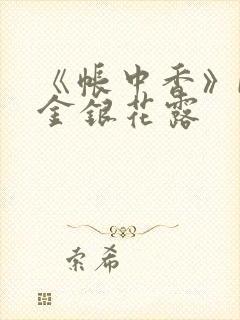 《帐中香》
金银花露
索希